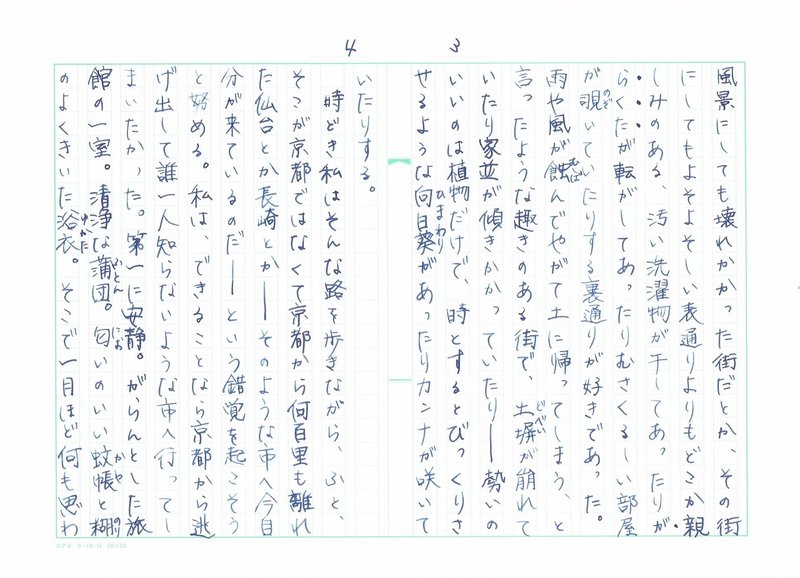 3
風景にしても壊れかかった街だとか、その街
にしてもよそよそしい表通りよりもどこか親
しみのある、汚い洗濯物が干してあったりが
らくたが転がしてあったりむさくるしい部屋
が覗いていたりする裏通りが好きであった。
のぞ
雨や風が蝕んでやがて土に帰ってしまう、と
むしば
言ったような趣きのある街で、土塀が崩れて
どべい
いたり家並が傾きかかっていたり――勢いの
いいのは植物だけで、時とするとびっくりさ
せるような向日葵があったりカンナが咲いて
ひまわり
4
いたりする。
時どき私はそんな路を歩きながら、ふと、
そこが京都ではなくて京都から何百里も離れ
た仙台とか長崎とか――そのような市へ今自
分が来ているのだ――という錯覚を起こそう
と努める。私は、できることなら京都から逃
げ出して誰一人知らないような市へ行ってし
まいたかった。第一に安静。がらんとした旅
館の一室。清浄な蒲団。匂いのいい蚊帳と糊
ふとん
にお
かや
のり
のよくきいた浴衣。そこで一月ほど何も思わ
ゆかた
コクヨ ケ-70 20×20